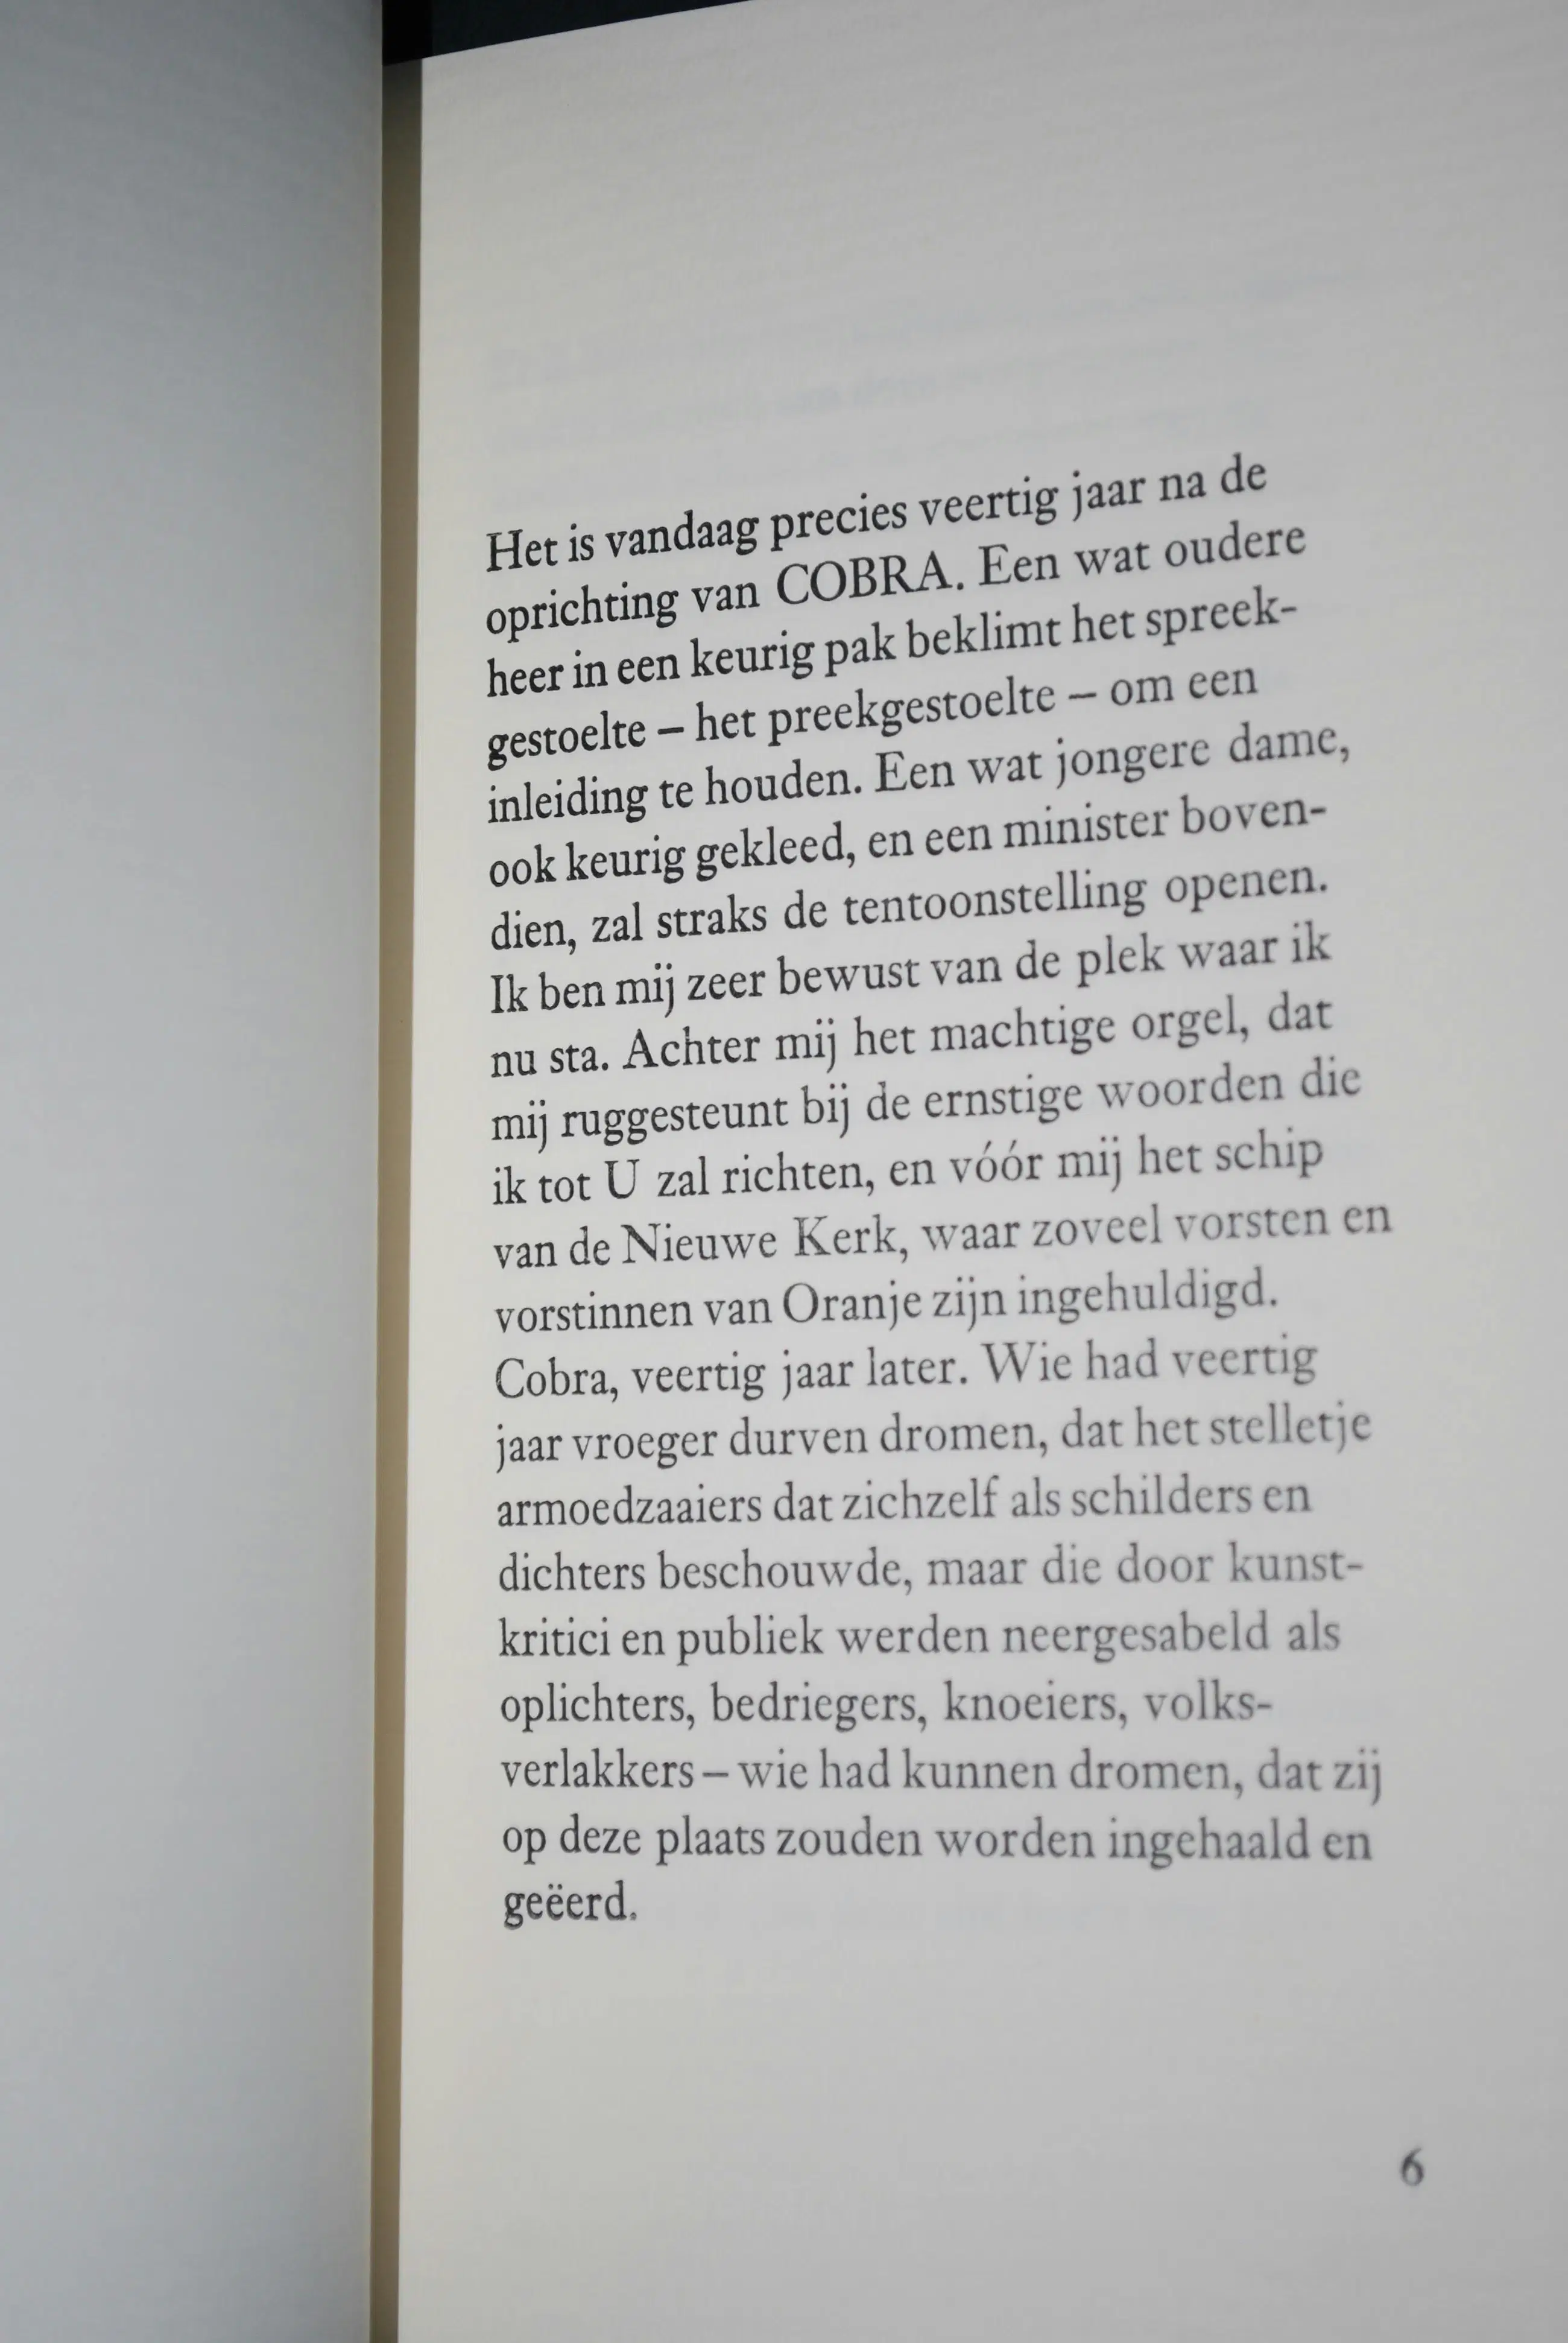 Het is vandaag precies veertig jaar na de
oprichting van COBRA. Een wat oudere
heer in een keurig pak beklimt het spreek-
gestoelte – het preekgestoelte – om een
inleiding te houden. Een wat jongere dame,
ook keurig gekleed, en een minister boven-
dien, zal straks de tentoonstelling openen.
Ik ben mij zeer bewust van de plek waar ik
nu sta. Achter mij het machtige orgel, dat
mij ruggesteunt bij de ernstige woorden die
ik tot U zal richten, en vóór mij het schip
van de Nieuwe Kerk, waar zoveel vorsten en
vorstinnen van Oranje zijn ingehuldigd.
Cobra, veertig jaar later. Wie had veertig
jaar vroeger durven dromen, dat het stelletje
armoedzaaiers dat zichzelf als schilders en
dichters beschouwde, maar die door kunst-
kritici en publiek werden neergesabeld als
oplichters, bedriegers, knoeiers, volks-
verlakkers – wie had kunnen dromen, dat zij
op deze plaats zouden worden ingehaald en
geëerd.
6